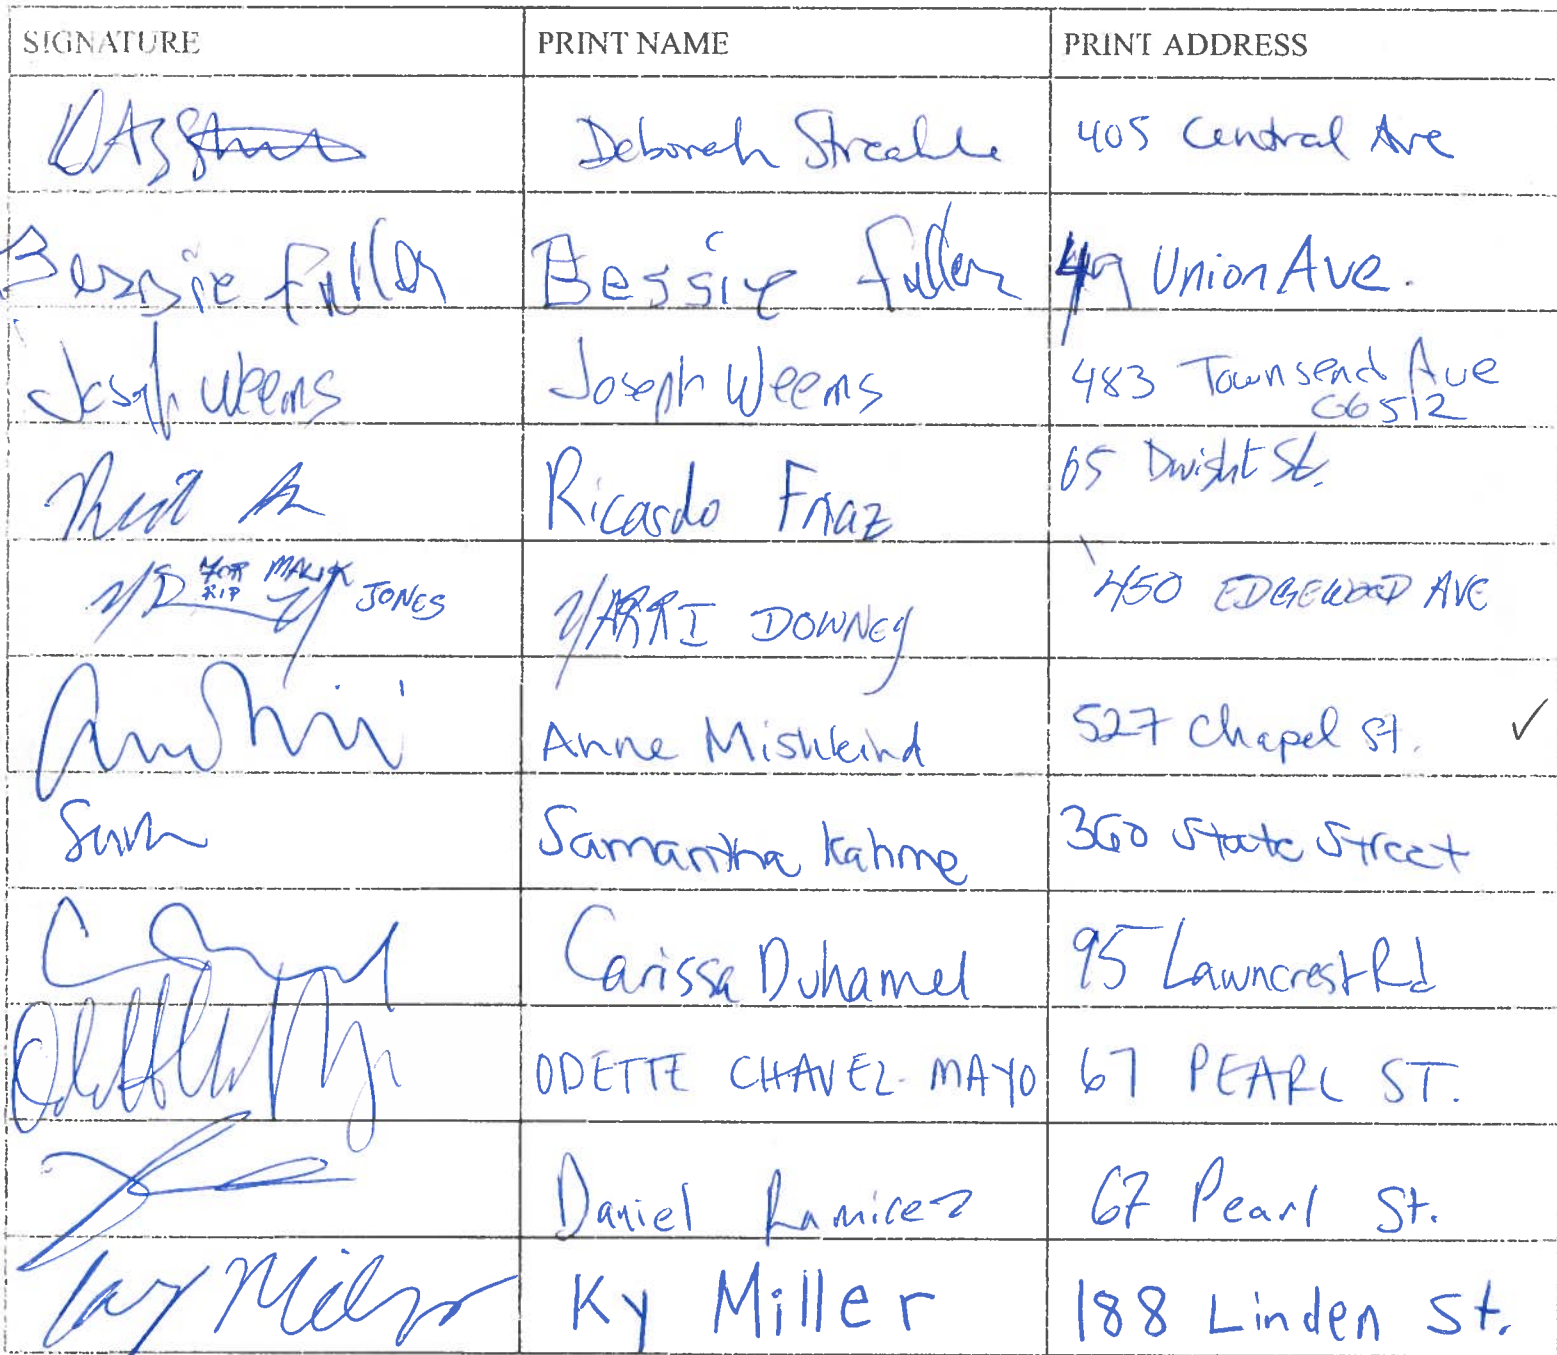 SIGNATURE PRINT NAME PRINT ADDRESS
Deborah 405 Central Ave
Bessie Fuller Bessie Fuller 49 Union Ave.
Joseph Weems Joseph Weems 483 Townsend Ave
06512
Ricardo Friaz 65 Dwight St.
FOR MALIK
RIP JONES YARRI DOWNEY 450 EDGEWOOD AVE
Anne Mishkind 527 Chapel St. ✓
Samantha Kahme 360 State Street
Carissa Duhamel 95 Lawncrest Rd
ODETTE CHAVEZ-MAYO 67 PEARL ST.
Daniel Ramirez 67 Pearl St.
Ky Miller 188 Linden St.